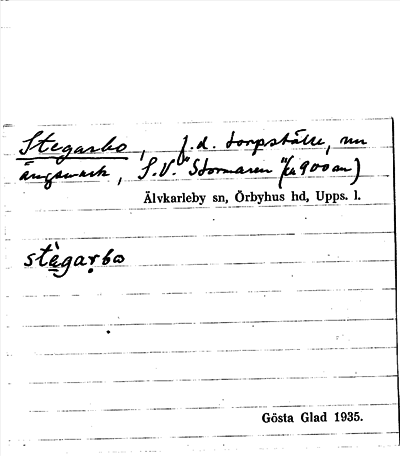 Stegarbo, f.d. torpställe, nu
ängsmark, S.V. Stormaren (ca 900 m)
Älvkarleby sn, Örbyhus hd, Upps. l.
stègarbo
Gösta Glad 1935.